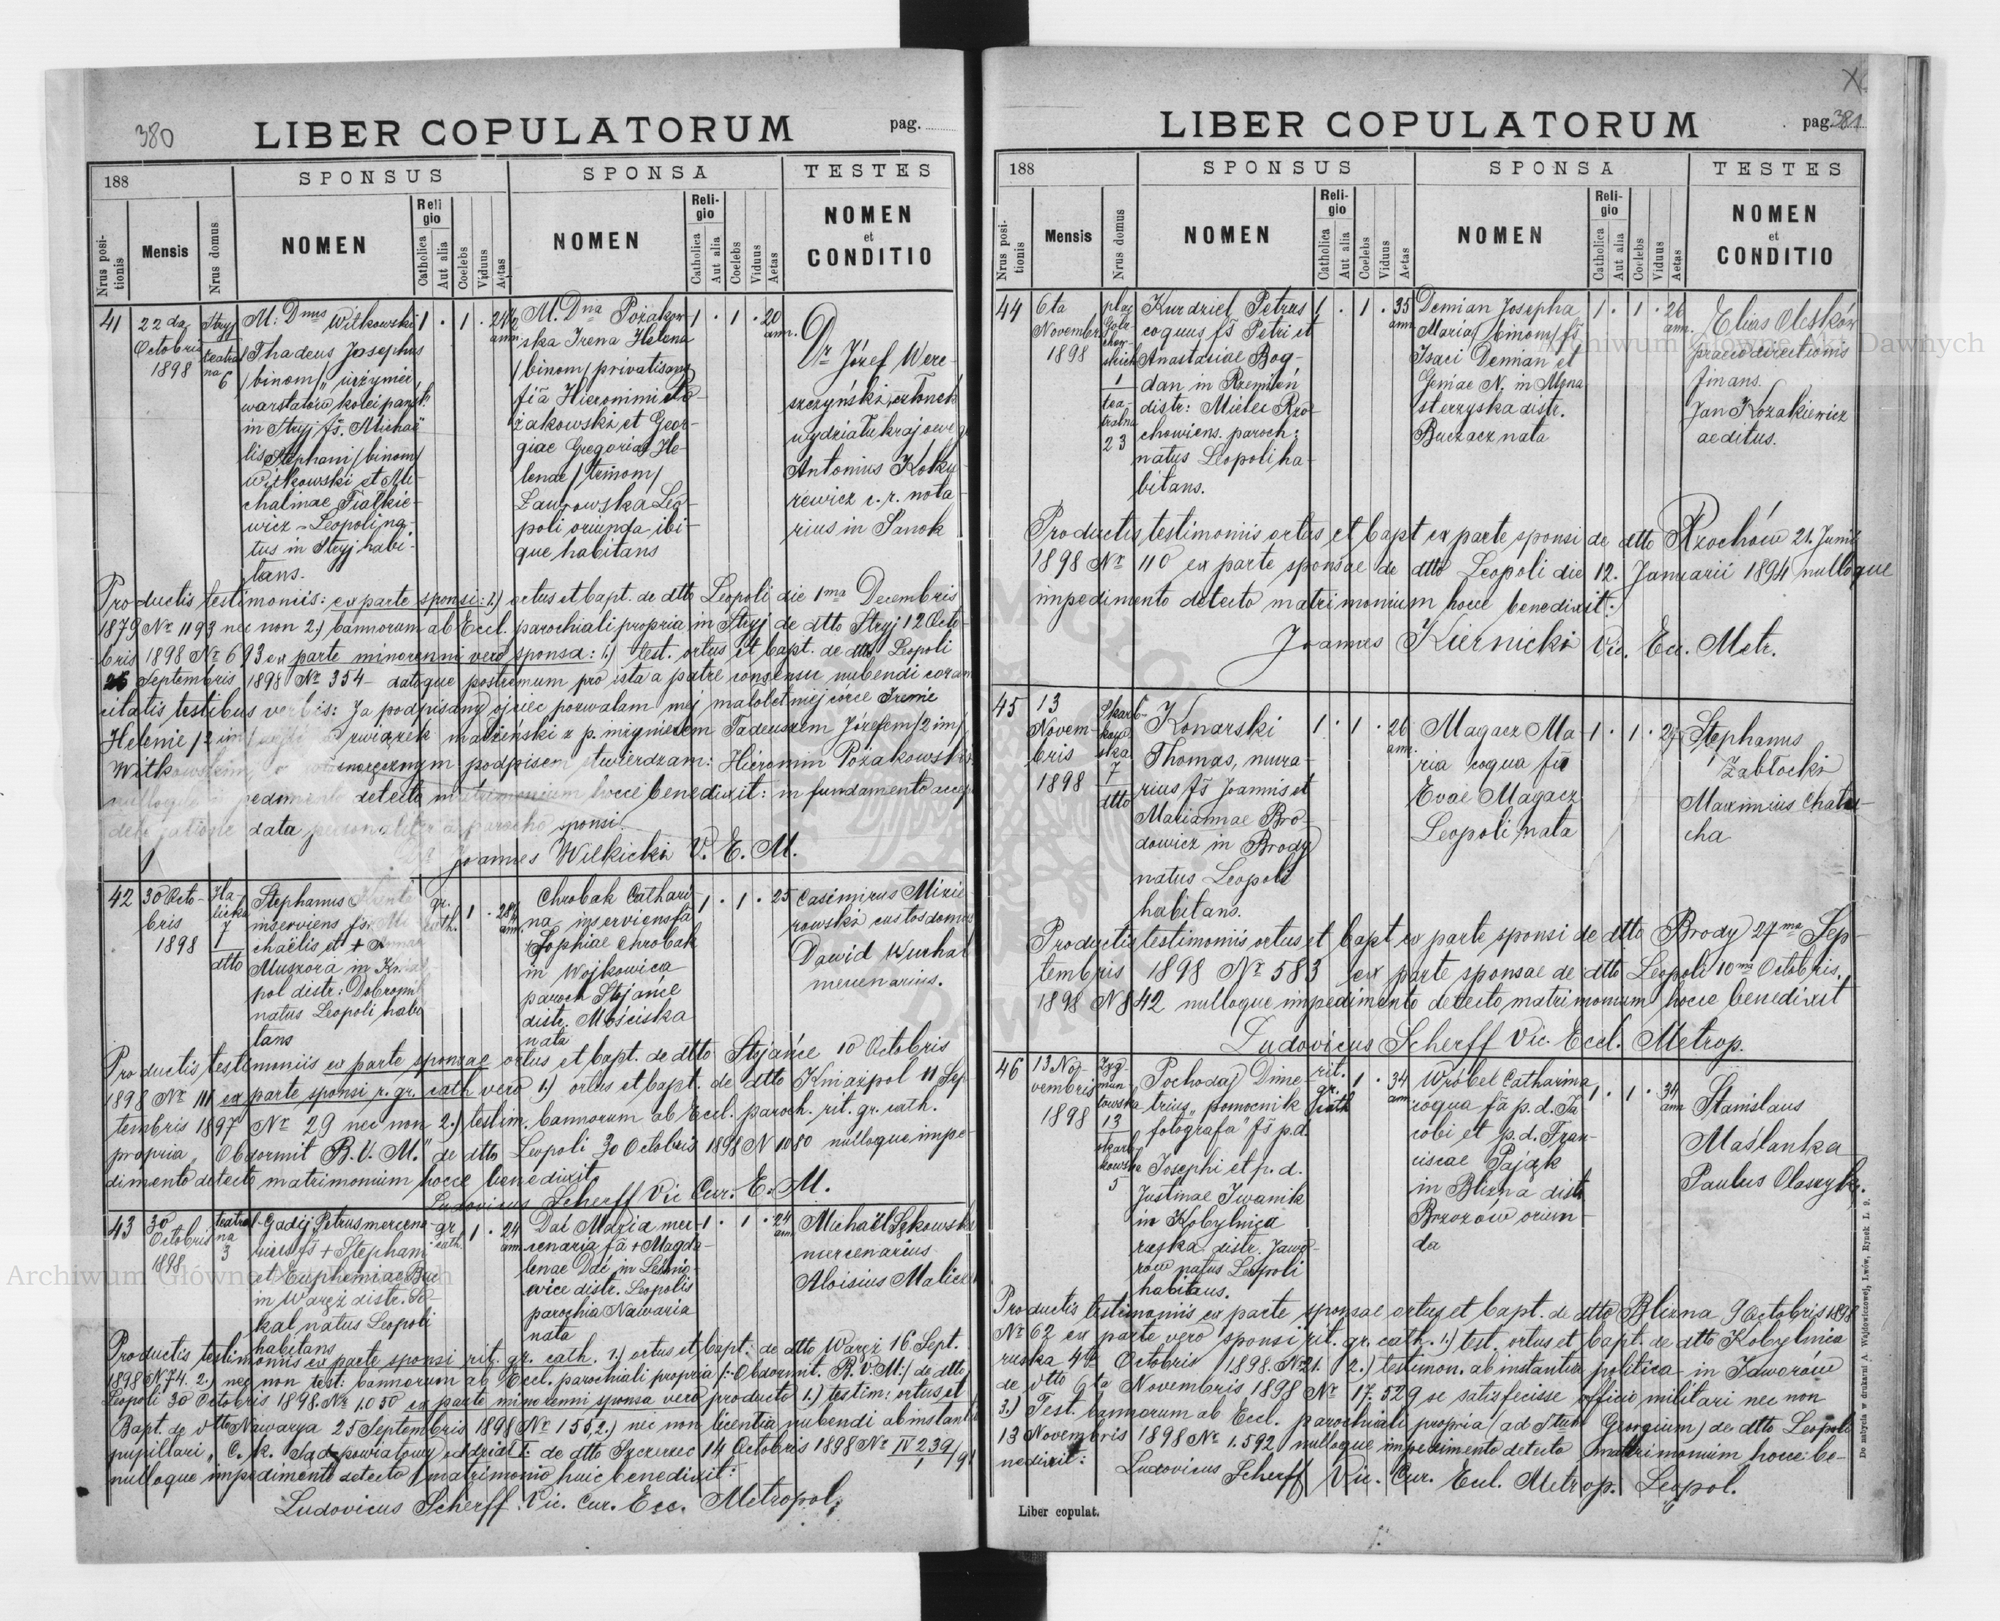 380
LIBER COPULATORUM
pag.
188
SPONSUS
SPONSA
TESTES
Nrus positionis
Mensis
Nrus domus
NOMEN
Religio
Catholica
Aut alia
Coelebs
Viduus
Aetas
NOMEN
Religio
Catholica
Aut alia
Coelebs
Viduus
Aetas
NOMEN
et
CONDITIO
41
22 da
Octobris
1898
Stryj
teatral
na 6
M. Dnus Witkowski
Thadeus Josephus
/binom/ „inżynier
warstatów kolei państ."
in Stryj fs. Michaë
lis Stephani /binom/
Witkowski et Mi-
chalinae Fialkie-
wicz - Leopoli na-
tus in Stryj habi-
tans.
1 . 1 .
ann.
M. Dna Pożakow
ska Irena Helena
/binom/ privatisans
fia Hieronimi Po
żakowski et Geor-
giae Gregoria He-
lenae /trinom/
Leo-
poli oriunda ibi-
que habitans
1 . 1 . 20
ann.
Dr Józef Were-
szczyński członek
wydziału krajowego
Antonius
rewicz c. r. nota-
rius in Sanok
Productis testimoniis: ex parte sponsi: 1.) ortus et bapt. de dtto Leopoli die 1ma Decembris
1879 Nr 1193 nec non 2.) bannorum ab Eccl. parochiali propria in Stryj de dtto Stryj 12 Octo-
bris 1898 Nr 693 ex parte minorenni vero sponsa: 1.) test. ortus et bapt. de dtto Leopoli
26 Septembris 1898 Nr 354 - datoque postremum pro ista a patre consensu nubendi coram
citatis testibus verbis: Ja podpisany ojciec pozwalam mej małoletniej córce Irenie
Helenie /2 im/ związek małżeński z p. inżynierem Tadeuszem Józefem /2 im/
Witkowskim, własnoręcznym podpisem stwierdzam: Hieronim Pożakowski
detecto matrimonium hocce benedixit: in fundamento accep
data personaliter a parocho sponsi.
Joannes Wilkicki V. E. M.
42
30 Octo-
bris
1898
Ha-
licka
7
1
dtto
Stephanus
inserviens fs. Mi
chaëlis et +
Muszora in Kniaż
pol distr: Dobromil
natus Leopoli habi
tans
gr.
cath.
1 . 28
ann.
Chrobak Cathari
na inserviens fa
Sophiae Chrobak
in Wojkowica
paroch Stojańce
distr. Mościska
nata
1 . 1 . 25
Casimirus Mizie
rowski custos domus
Dawid Wuchal
mercenarius.
Productis testimoniis ex parte sponsae ortus et bapt. de dtto Stojańce 10 Octobris
1898 Nr 111 ex parte sponsi r. gr. cath vero 1.) ortus et bapt. de dtto Kniażpol 11 Sep-
tembris 1897 Nr 29 nec non 2.) testim. bannorum ab Eccl. paroch. rit. gr. cath.
propria „Obdormit B. V. M." de dtto Leopoli 30 Octobris 1898 N 1080 nulloque impe-
dimento detecto matrimonium hocce benedixit
Ludovicus Scherff Vic Cur. E. M.
43
30
Octobris
1898
teatral-
na
3
Gadij Petrus mercena-
rius fs + Stephani
et Euphemiae
in Waręż distr. So-
kal natus Leopoli
habitans
gr.
cath.
1 . 24
ann.
Dać Maria mer-
cenaria fa + Magda-
lenae Dać in
distr. Leopolis
parochia Nawaria
nata
1 . 1 . 24
ann.
Michaël Sękowski
mercenarius
Aloisius
Productis testimoniis ex parte sponsi rit. gr. cath. 1.) ortus et bapt. de dtto Waręż 16 Sept.
1898 N 74. 2.) nec non test: bannorum ab Eccl. parochiali propria /: Obdormit. B. V. M:/ de dtto
Leopoli 30 Octobris 1898. Nr 1.050 ex parte minorenni sponsa vero producto 1.) testim: ortus et
Bapt. de dtto Nawarya 25 Septembris 1898 Nr 155, 2.) nec non licentia nubendi ab instantia
pupillari, C. k. Sąd powiatowy oddział I: de dtto Szczerzec 14 Octobris 1898 Nr IV 239/98
nulloque impedimento detecto matrimonio huic benedixit:
Ludovicus Scherff Vic. Cur. Ecc. Metropol.
LIBER COPULATORUM
pag. 381
188
SPONSUS
SPONSA
TESTES
Nrus positionis
Mensis
Nrus domus
NOMEN
Religio
Catholica
Aut alia
Coelebs
Viduus
Aetas
NOMEN
Religio
Catholica
Aut alia
Coelebs
Viduus
Aetas
NOMEN
et
CONDITIO
44
6ta
Novembr
1898
plac
1
tea-
tralna
23
Kurdziel Petrus
coquus fs Petri et
Anastasiae Bog-
dan in Rzemień
distr: Mielec Rzo-
chowiens. paroch:
natus Leopoli ha-
bitans.
1 . 1 . 35
ann
Demian Josepha
Maria /binom/ fa
Isaci Demian et
N. in Mona
sterzyska distr.
Buczacz nata
1 . 1 . 26
ann.
Elias Oleskow
directionis
finans.
Jan Kozakiewicz
aeditus.
Productis testimoniis ortus et bapt ex parte sponsi de dtto Rzochów 21. Junii
1898 Nr 110 ex parte sponsae de dtto Leopoli die 12. Januarii 1894 nulloque
impedimento detecto matrimonium hocce benedixit:
Joannes Kiernicki Vic. Ecc. Metr.
45
13
Novem-
bris
1898
Skarb-
kow
ska
7
dtto
Konarski
Thomas, mura-
rius fs Joannis et
Mariannae Bro-
dowicz in Brody
natus Leopoli
habitans.
1 . 1 . 26
ann.
Magacz Ma
ria coqua fa
Evae Magacz
Leopoli nata
1 . 1 .
Stephanus
Zabłocki
Maximius Chatu-
cha
Productis testimoniis ortus et bapt ex parte sponsi de dtto Brody 27ma Sep-
tembris 1898 Nr 583 ex parte sponsae de dtto Leopoli 10ma Octobris
1898 N 842 nulloque impedimento detecto matrimonium hocce benedixit
Ludovicus Scherff Vic. Eccl. Metrop.
46
13 No-
vembris
1898
Zyg-
mun-
towska
13
skarb
kowska
5
Pochodaj Dime-
trius „pomocnik
fotografa" fs p. d.
Josephi et p. d.
Justinae Iwanik
in Kobylnica
ruska distr. Jawo-
rów natus Leopoli
habitans.
rit.
gr.
cath
1 . 34
ann
Wróbel Catharina
coqua fa p. d. Ja
cobi et p. d. Fran-
ciscae Pająk
in Blizna distr
Brzozów oriun-
da
1 . 1 . 34
ann
Stanislaus
Maślanka
Paulus
Productis testimoniis ex parte sponsae ortus et bapt. de dtto Blizna 9 Octobris 1898
Nr 62 ex parte vero sponsi rit. gr. cath. 1.) test. ortus et bapt. de dtto Kobylnica
ruska 4ta Octobris 1898. N 21. 2.) testimon. ab instantia politica in Jaworów
de dtto 9ta Novembris 1898 Nr 17.529 se satisfecisse officio militari nec non
3.) Test. bannorum ab Eccl. parochiali propria /ad Stum Georgium/ de dtto Leopoli
13 Novembris 1898 Nr 1.592 nulloque impedimento detecto matrimonium hocce be-
nedixit:
Ludovicus Scherff Vic. Cur. Eccl. Metrop. Leopol.
Liber copulat.
Do nabycia w drukarni A. Wajdowiczowej, Lwów, Rynek L. 9.
Archiwum Główne Akt Dawnych
Archiwum Główne Akt Dawnych